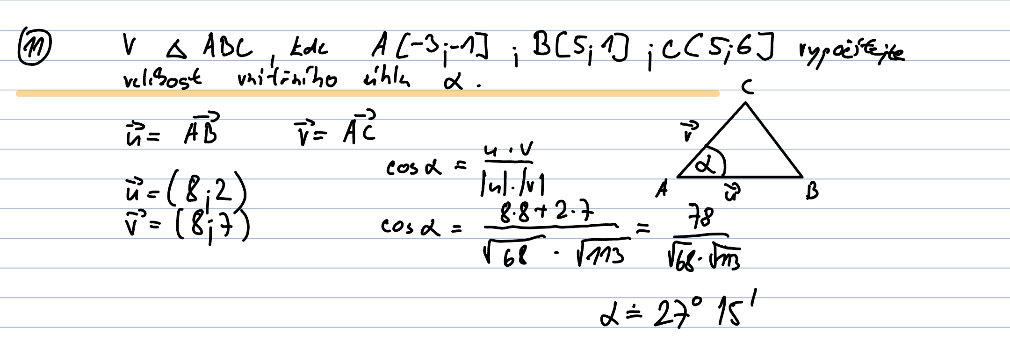 11) V △ ABC, kde A[-3;-1] ; B[5;1] ; C[5;6] vypočítejte
velikost vnitřního úhlu α.
C
u⃗ = AB⃗ v⃗ = AC⃗
v⃗
cos α = u · v / |u| · |v|
α
A u⃗ B
u⃗ = (8;2)
v⃗ = (8;7)
cos α = 8·8 + 2·7 / √68 · √113 = 78 / √68 · √113
α ≐ 27° 15'